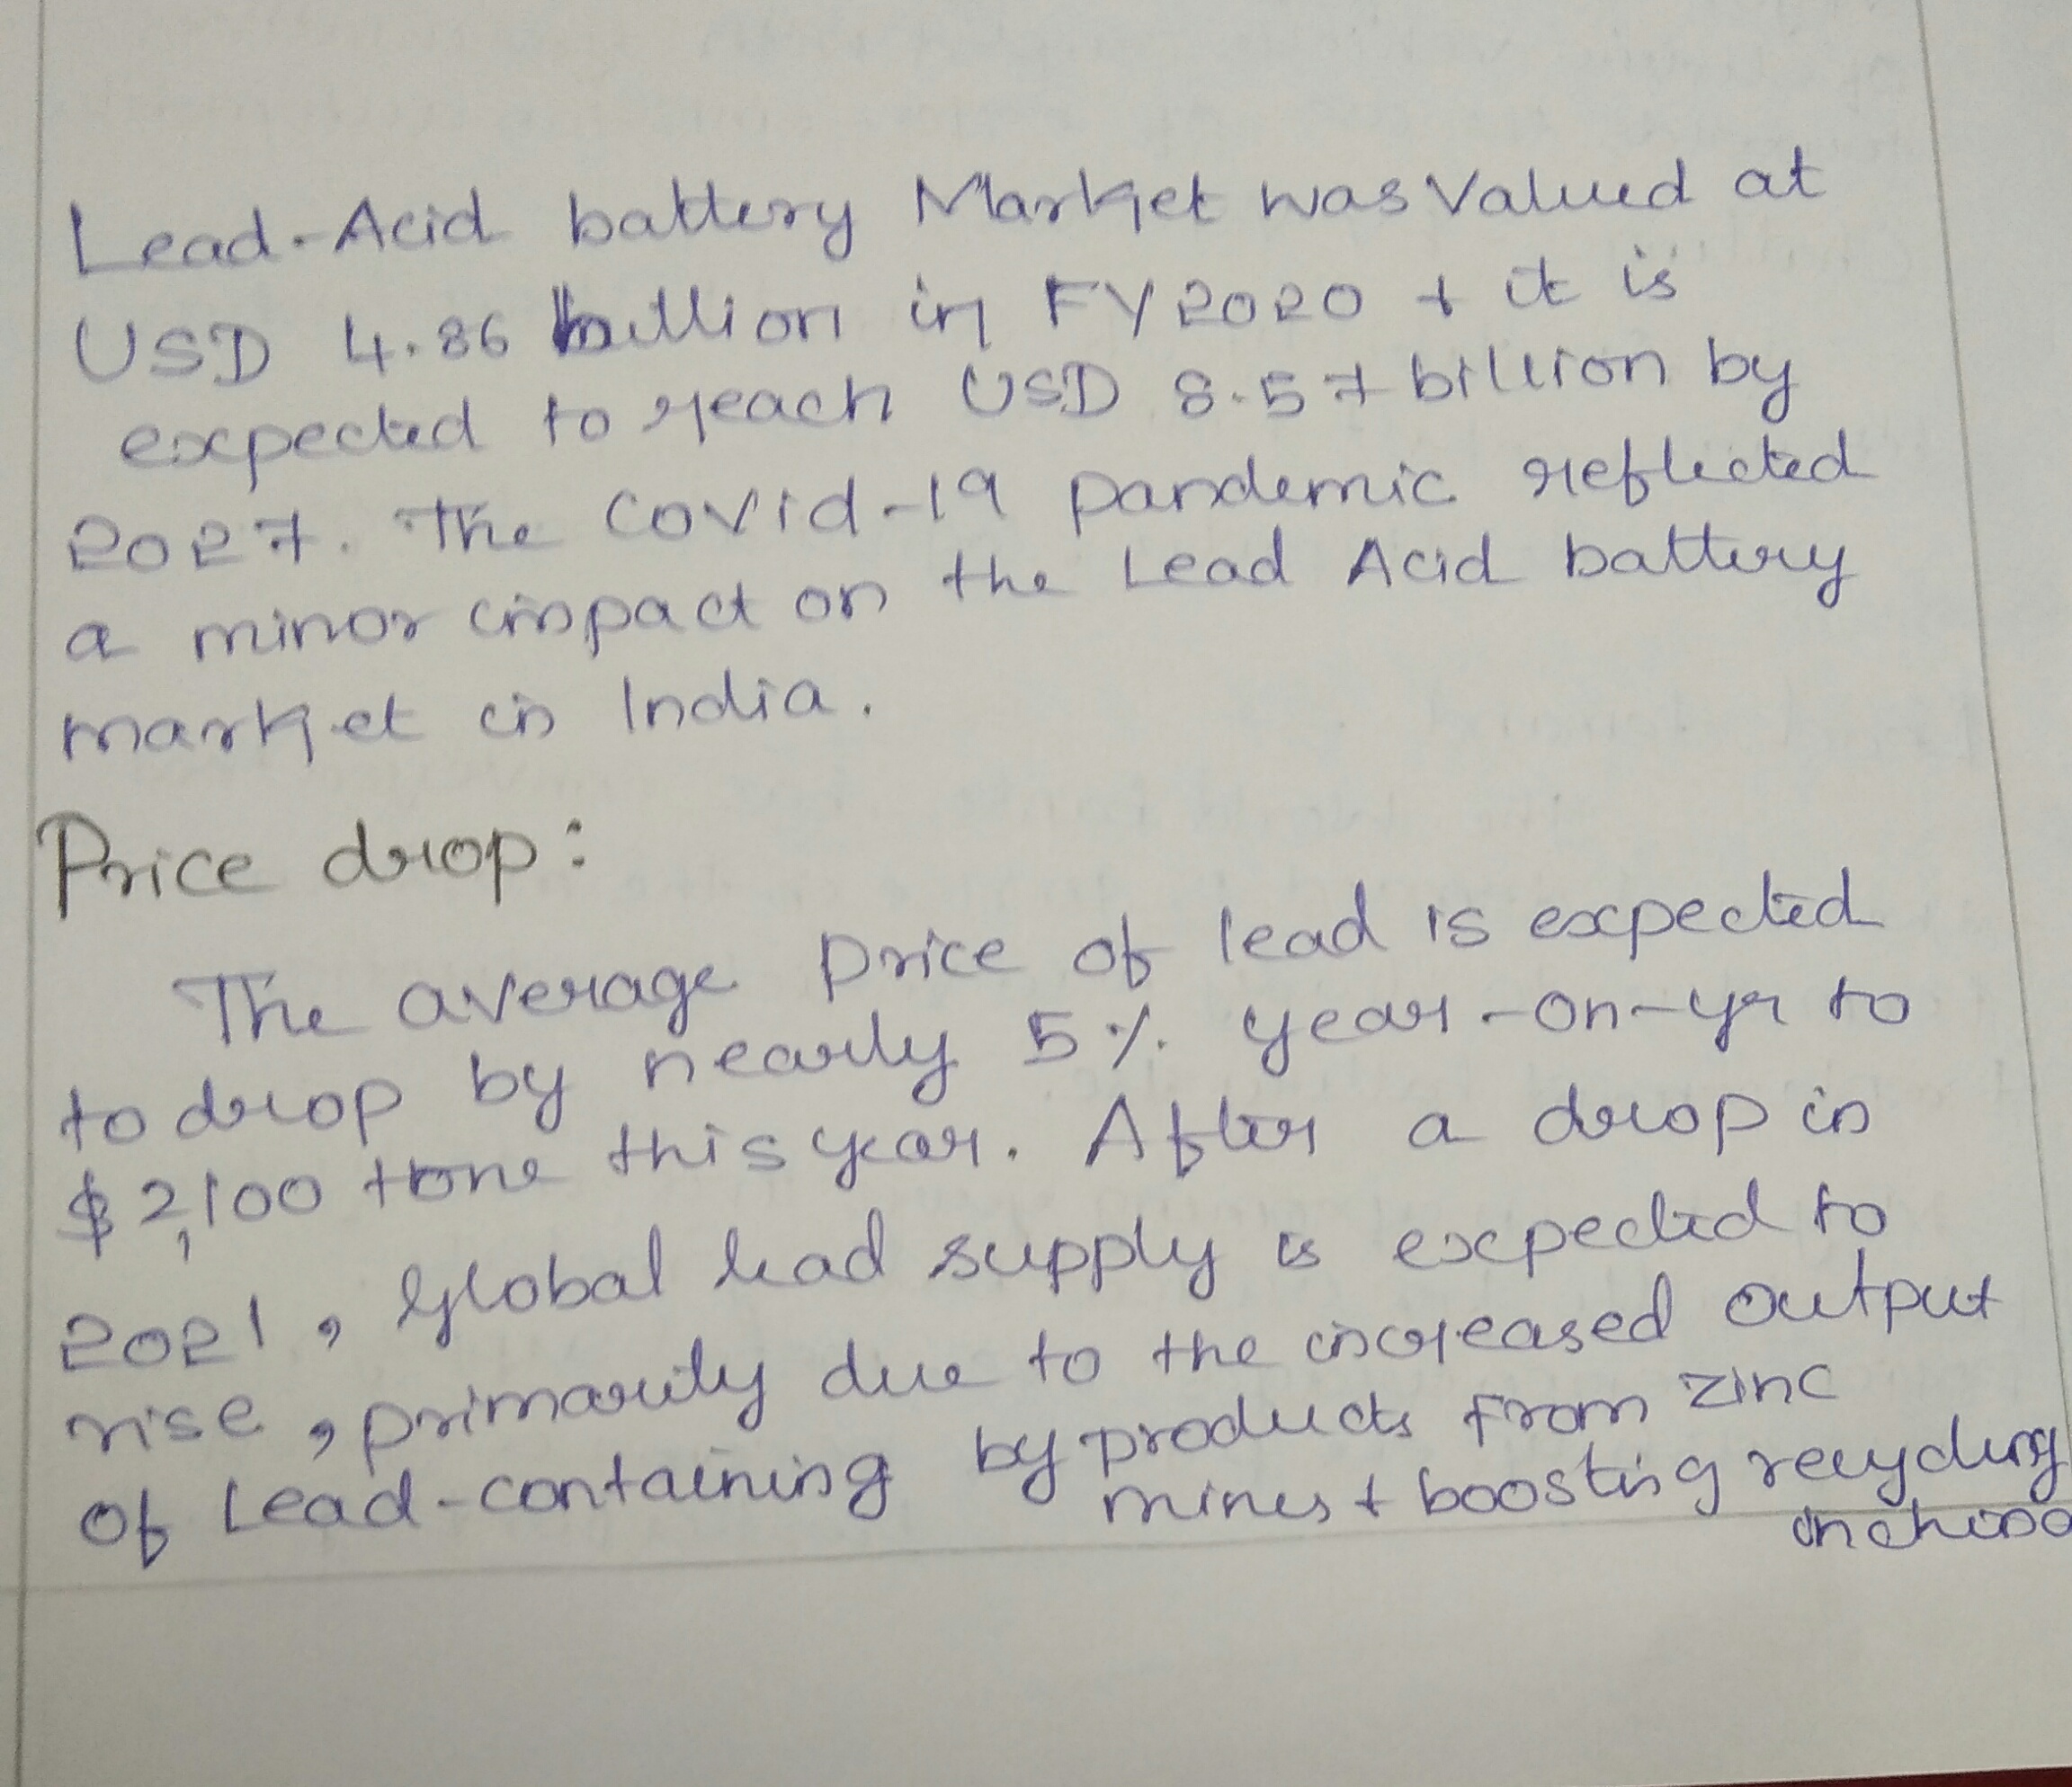 Lead-Acid battery Market was Valued at
USD 4.86 billion in FY2020 + it is
expected to reach USD 8.57 billion by
2027. The Covid-19 pandemic reflected
a minor impact on the Lead Acid battery
market in India.
Price drop:
The average price of lead is expected
to drop by nearly 5% year-on-yr to
$2,100 tone this year. After a drop in
2021, Global lead supply is expected to
rise, primarily due to the increased output
of Lead-containing by products from zinc
mines + boosting recycling
in china